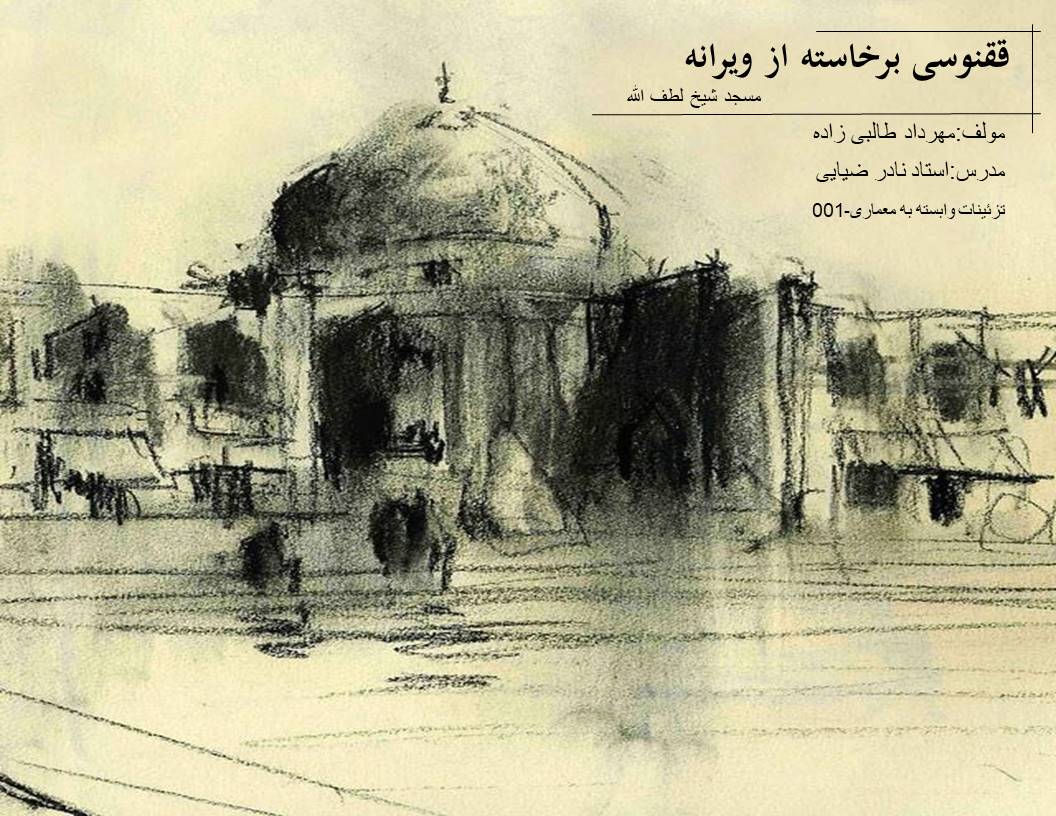 ققنوسی برخاسته از ویرانه
مسجد شیخ لطف الله
مولف:مهرداد طالبی زاده
مدرس:استاد نادر ضیایی
تزئینات وابسته به معماری-001